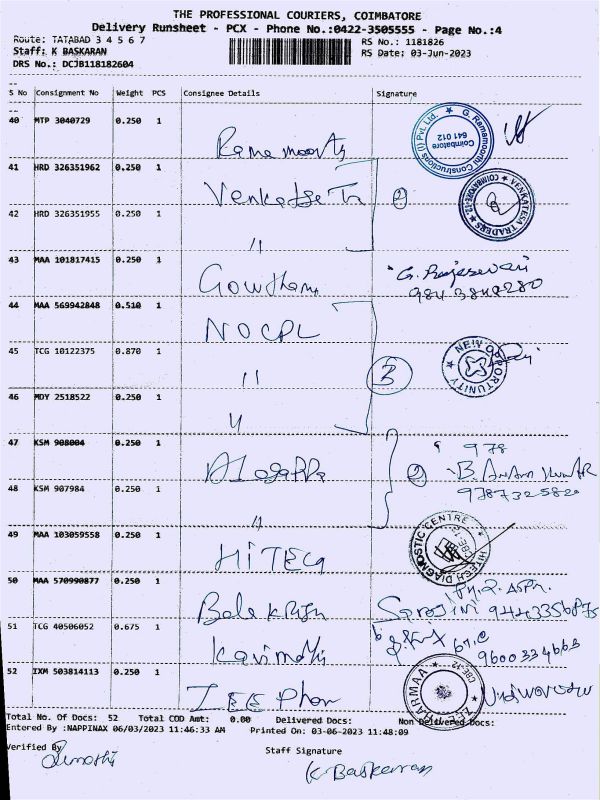 THE PROFESSIONAL COURIERS, COIMBATORE
Delivery Runsheet - PCX - Phone No.:0422-3505555 - Page No.:4
Route: TATABAD 3 4 5 6 7 RS No.: 1181826
Staff: K BASKARAN RS Date: 03-Jun-2023
DRS No.: DCJB118182604
S No Consignment No Weight PCS Consignee Details Signature
40 MTP 3040729 0.250 1 Ramamoorthy G. Ramamoorthi Constructions (I) Pvt. Ltd. Coimbatore 641 012
41 HRD 326351962 0.250 1 Venkatesa Tr 2 VENKATESA TRADERS COIMBATORE-12
42 HRD 326351955 0.250 1 "
43 MAA 101817415 0.250 1 Gowtham G. Rajeswari
44 MAA 569942848 0.510 1 NOCPL
45 TCG 10122375 0.870 1 " 3 NEW OPPORTUNITY
46 MDY 2518522 0.250 1 "
47 KSM 908004 0.250 1 Alagappa 2 978
B.
48 KSM 907984 0.250 1 " 9787325820
49 MAA 103059558 0.250 1 HITECH HITECH DIAGNOSTIC CENTRE CBE-12
50 MAA 570990877 0.250 1 Balakrish Sarojini
51 TCG 40506052 0.675 1 9600334663
52 IXM 503814113 0.250 1 ZEE Phar ZEE PHARMAA CBE-12
Total No. Of Docs: 52 Total COD Amt: 0.00 Delivered Docs: Non Delivered Docs:
Entered By :NAPPINAX 06/03/2023 11:46:33 AM Printed On: 03-06-2023 11:48:09
Verified By Staff Signature
K Baskaran